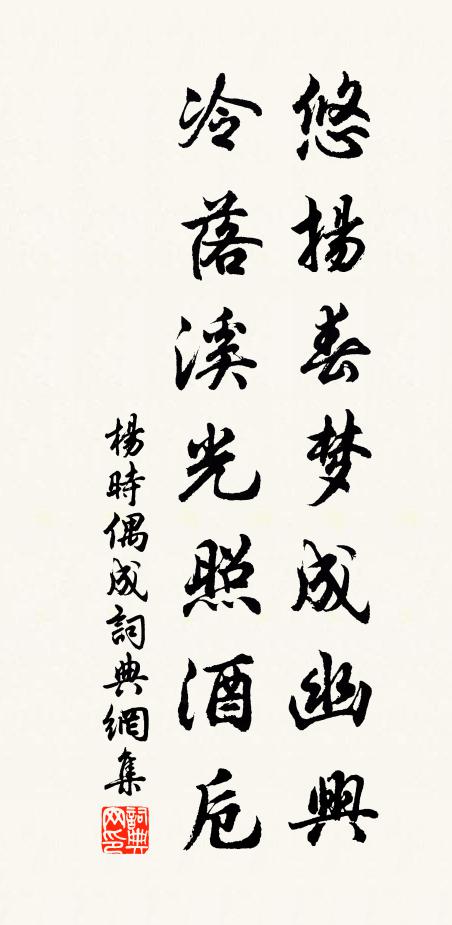 悠揚春梦成幽興
冷落溪光照酒卮
楊時偶成詞典網集
詞典
网印